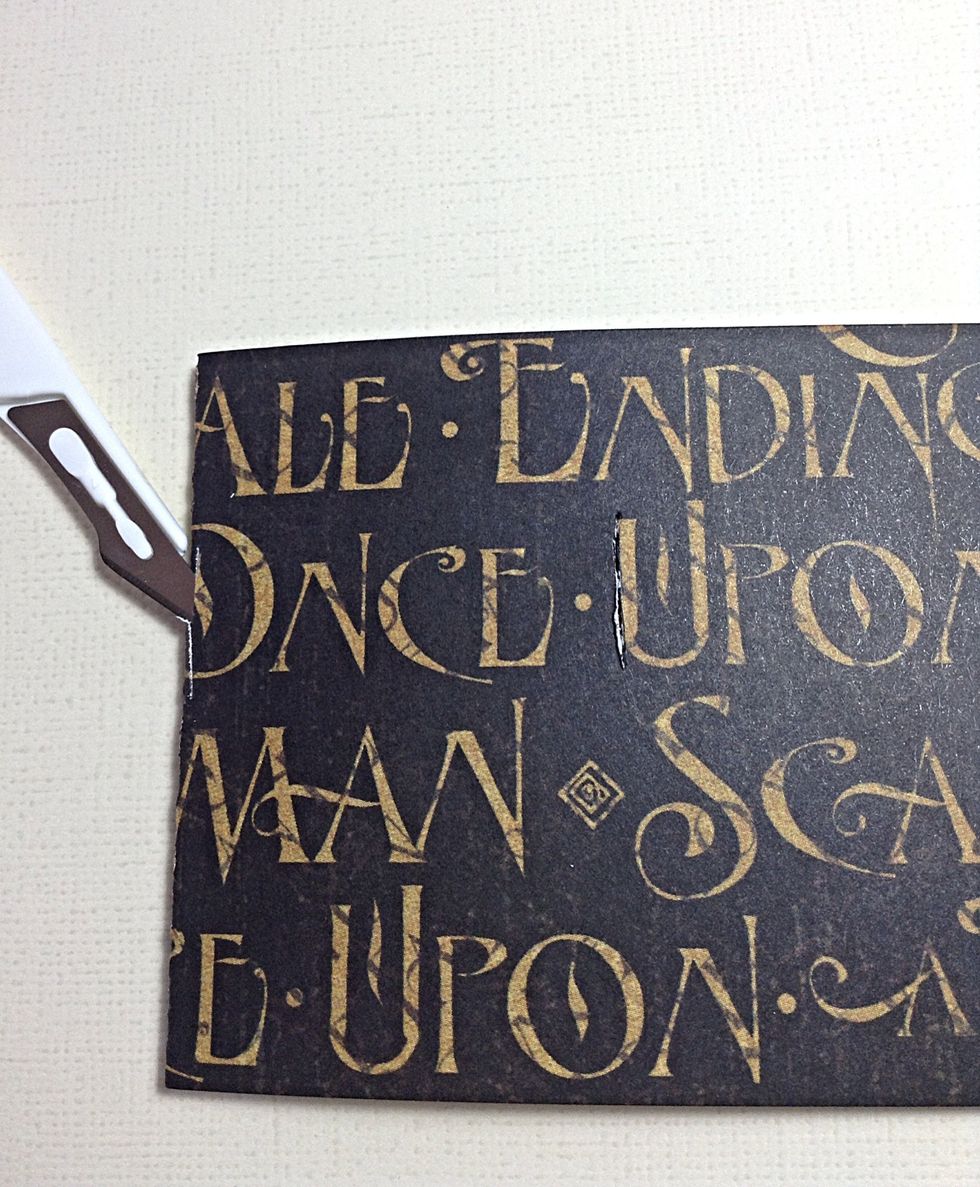 ALE · ENDING
ONCE · UPON
MAN SCA
CE UPON · A